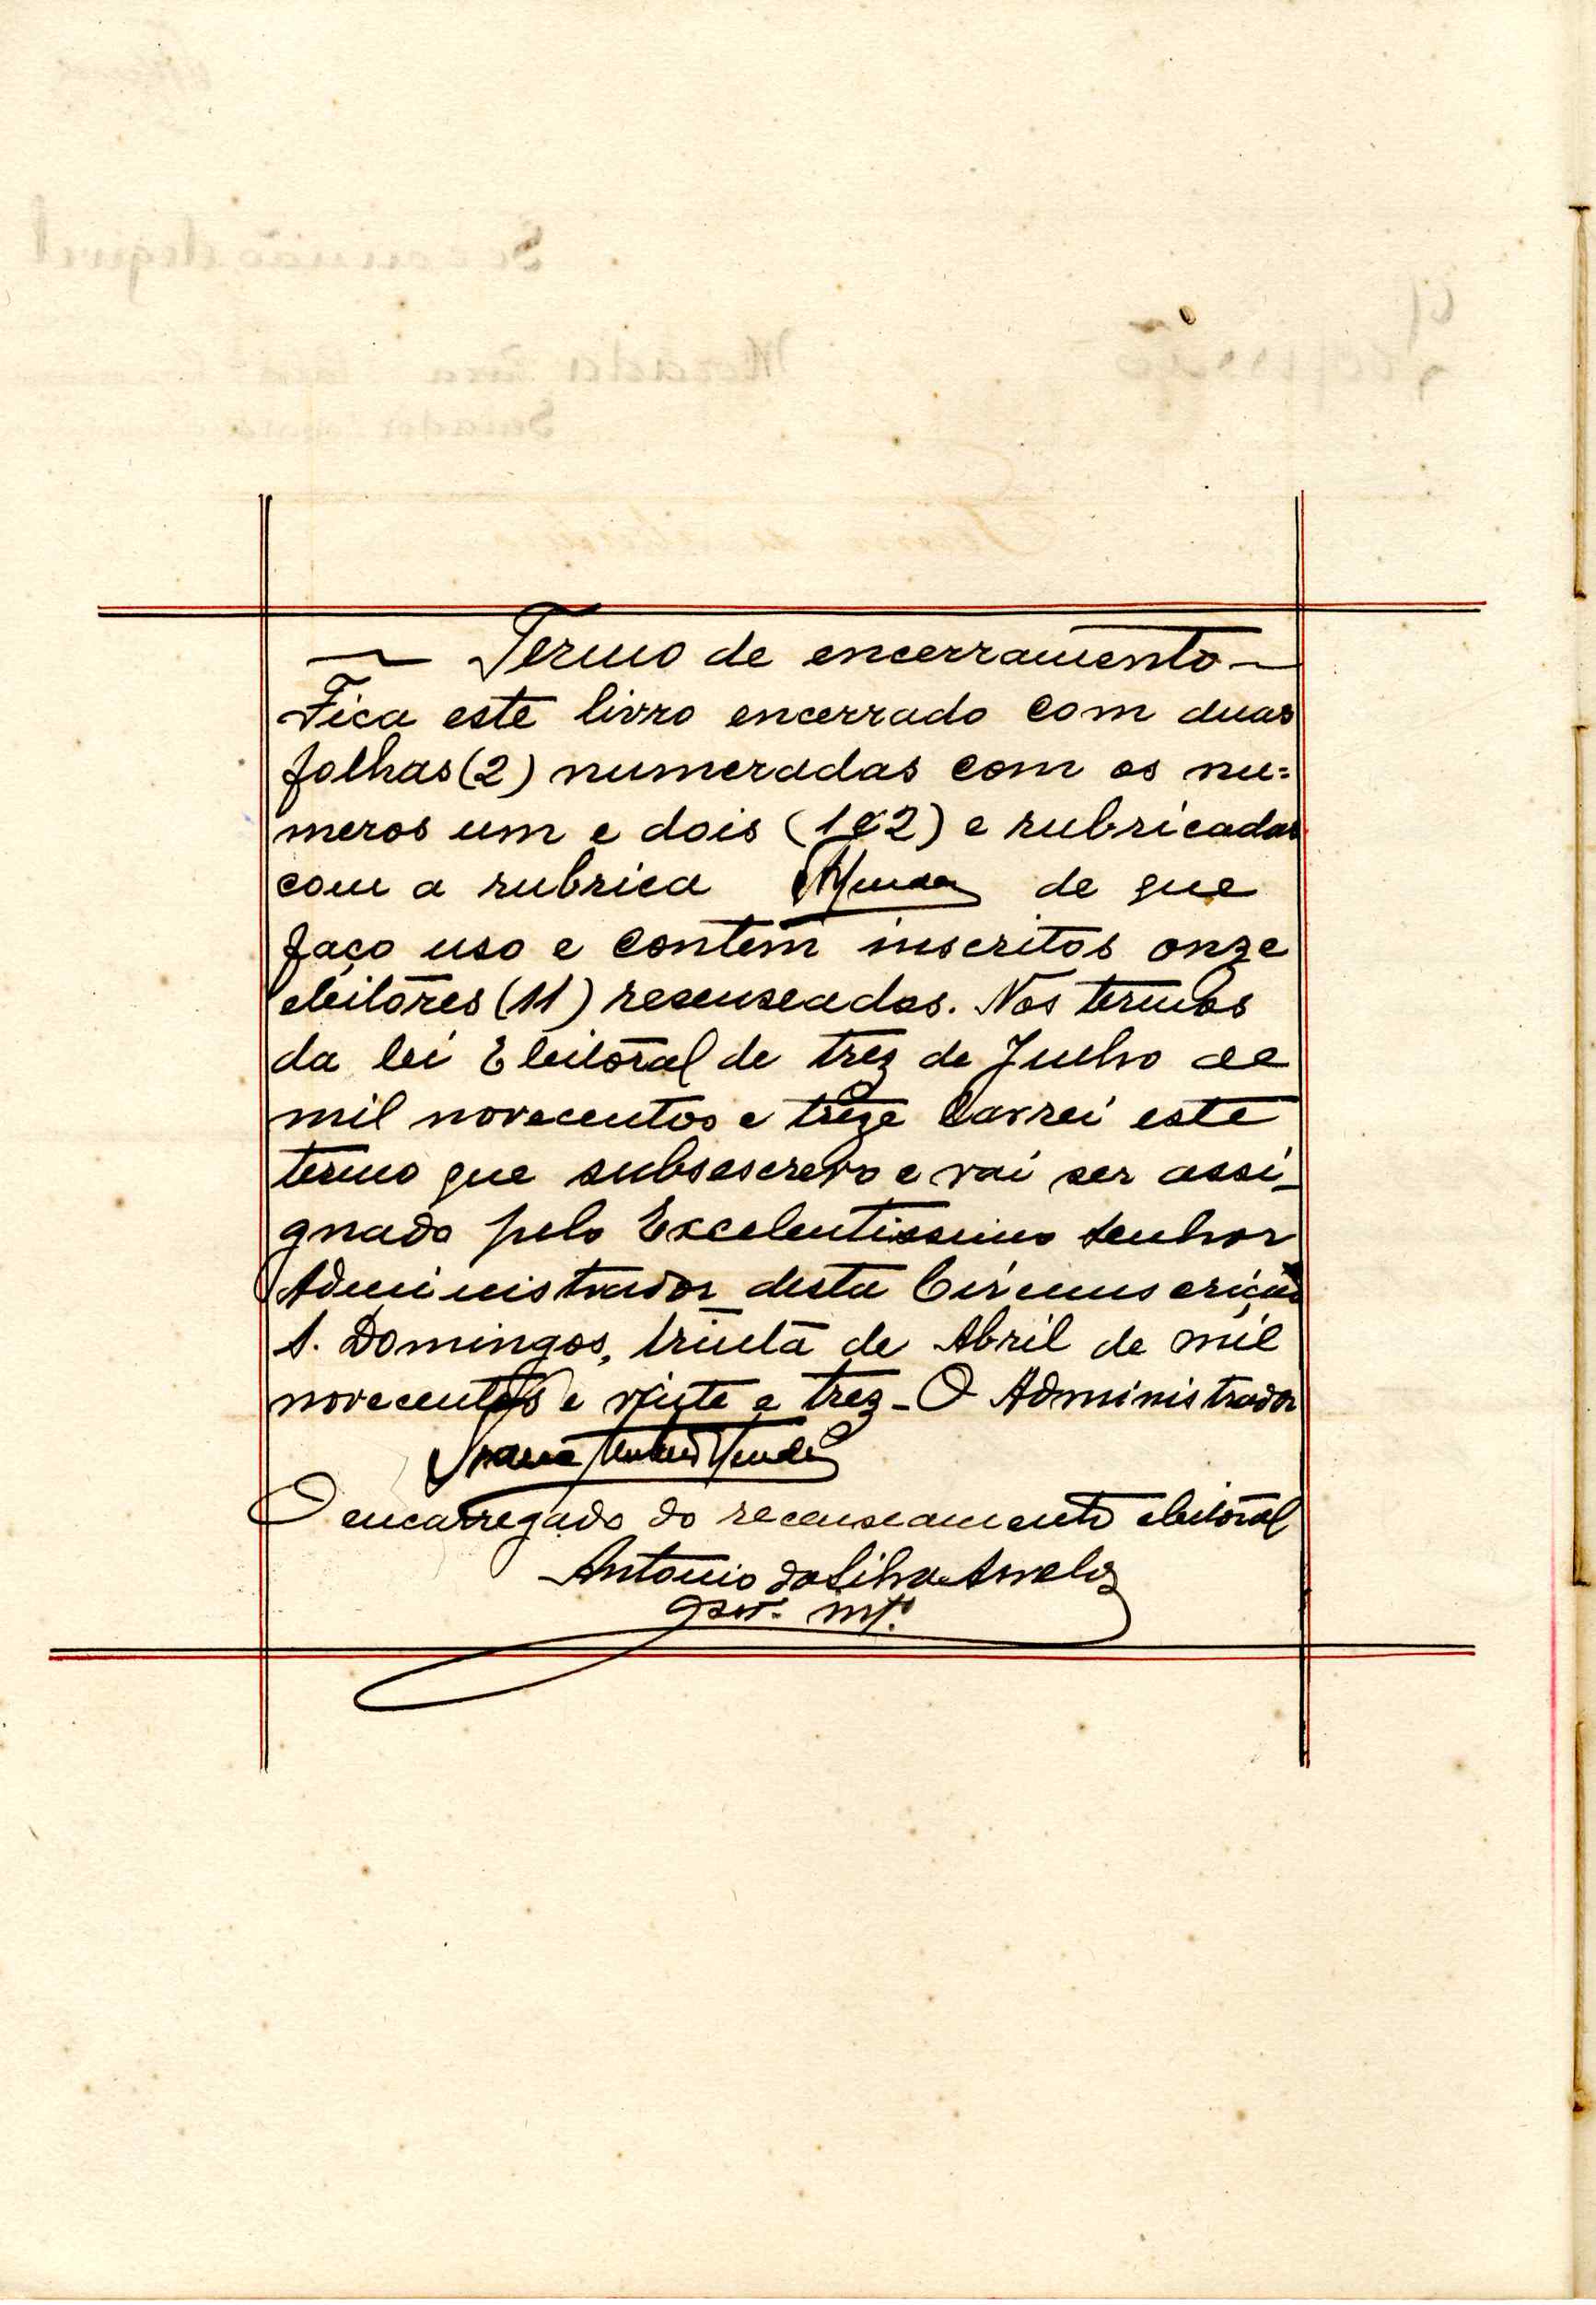 Termo de encerramento
Fica este livro encerrado com duas
folhas (2) numeradas com os nu=
meros um e dois (1e2) e rubricadas
com a rubrica de que
faço uso e contem inscritos onze
eleitores (11) resenseados. Nos termos
da lei Eleitoral de trez de Julho de
mil novecentos e treze lavrei este
termo que subsescrevo e vai ser assi-
gnado pelo Excelentissimo Senhor
Administrador desta Circumscrição
S. Domingos, trinta de Abril de mil
novecentos e vinte e trez - O Administrador
O encarregado do recenseamento eleitoral
Antonio da Silva